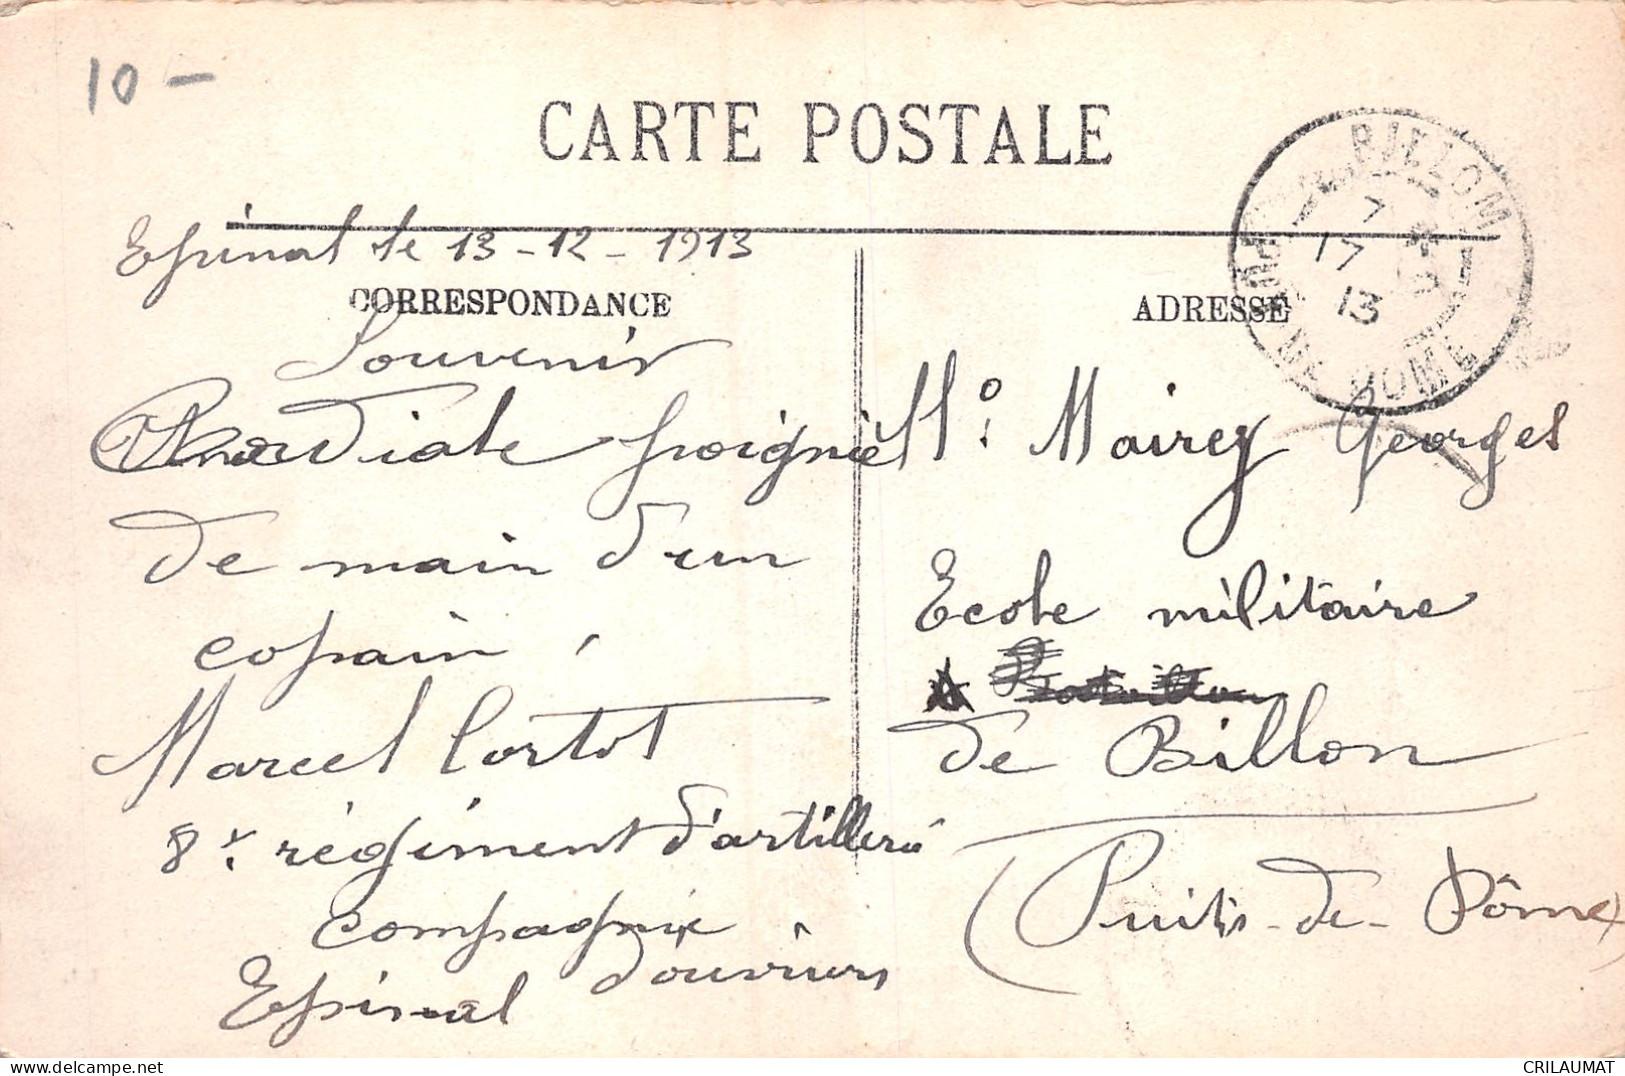 10 -
CARTE POSTALE
Epinal le 13-12-1913
CORRESPONDANCE
Souvenir
poignée
de main d'un
copain,
Marcel Cortot
8e régiment d'artillerie
compagnie
d'ouvriers
Epinal
ADRESSE
BILLOM
7
17
13
DOME
M. Mairey Georges
Ecole militaire
de Billon
(Puits-de-Dôme)
CRILAUMAT